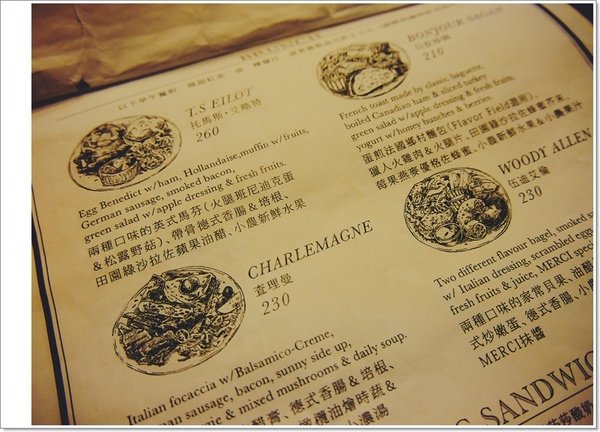 BRUNCH
以下早午餐附
T.S EILOT
托馬斯·艾略特
260
Egg Benedict w/ham, Hollandaise,muffin w/fruits,
German sausage, smoked bacon,
green salad w/apple dressing & fresh fruits.
兩種口味的英式馬芬(火腿班尼迪克蛋
&松露野菇)、帶骨德式香腸&培根、
田園綠沙拉佐蘋果油醋、小農新鮮水果
BONJOUR SAGAN
日安莎岡
210
French toast made by classic baguette,
boiled Canadian ham & sliced turkey
green salad w/apple dressing & fresh fruits,
yogurt w/honey bunches & berries.
蛋煎法國鄉村麵包(Flavor Field選用)、
獵人火雞肉&火腿片、田園綠沙拉佐蜂蜜芥末、
莓果燕麥優格佐蜂蜜、小農新鮮水果&小農果汁
CHARLEMAGNE
查理曼
230
Italian focaccia w/Balsamico-Creme,
man sausage, bacon, sunny side up,
gie & mixed mushrooms & daily soup.
醋膏、德式香腸&培根、
欖油燴時蔬&
小農湯
WOODY ALLEN
伍迪艾倫
230
Two different flavour hagel, smoked sa
w/ Italian dressing, scrambled eggs
fresh fruits & juice, MERCI speci
兩種口味的家常貝果、油醋
式炒嫩蛋、德式香腸、小農
MERCI抹醬
G SANDWIC
莎莎酸奶